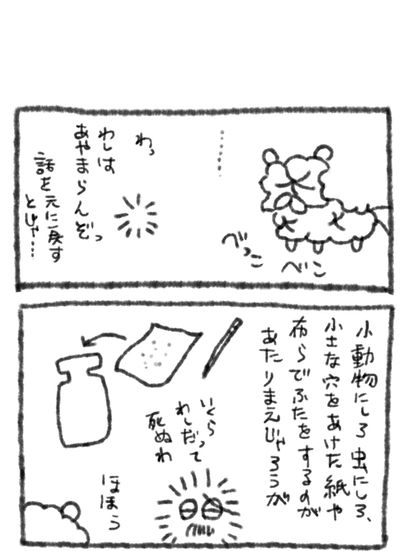 ‥‥‥
べっこ
べこ
わっ
わしは
あやまらんぞっ
話を元に戻す
とじゃ…
小動物にしろ虫にしろ、
小さな穴をあけた紙や
布らでふたをするのが
あたりまえじゃろうが
いくら
わしだって
死ぬわ
ほほう